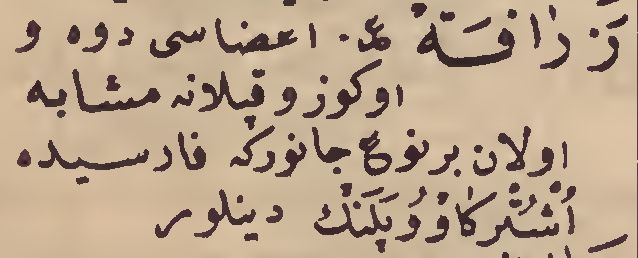 زَرَافَةْ ع. اعضاسی دوه و
اوکوز و قپلانه مشابه
اولان بر نوع جانور که فارسیده
أُشْتُرْ کَاوْ وُ پَلَنْكْ دینلور